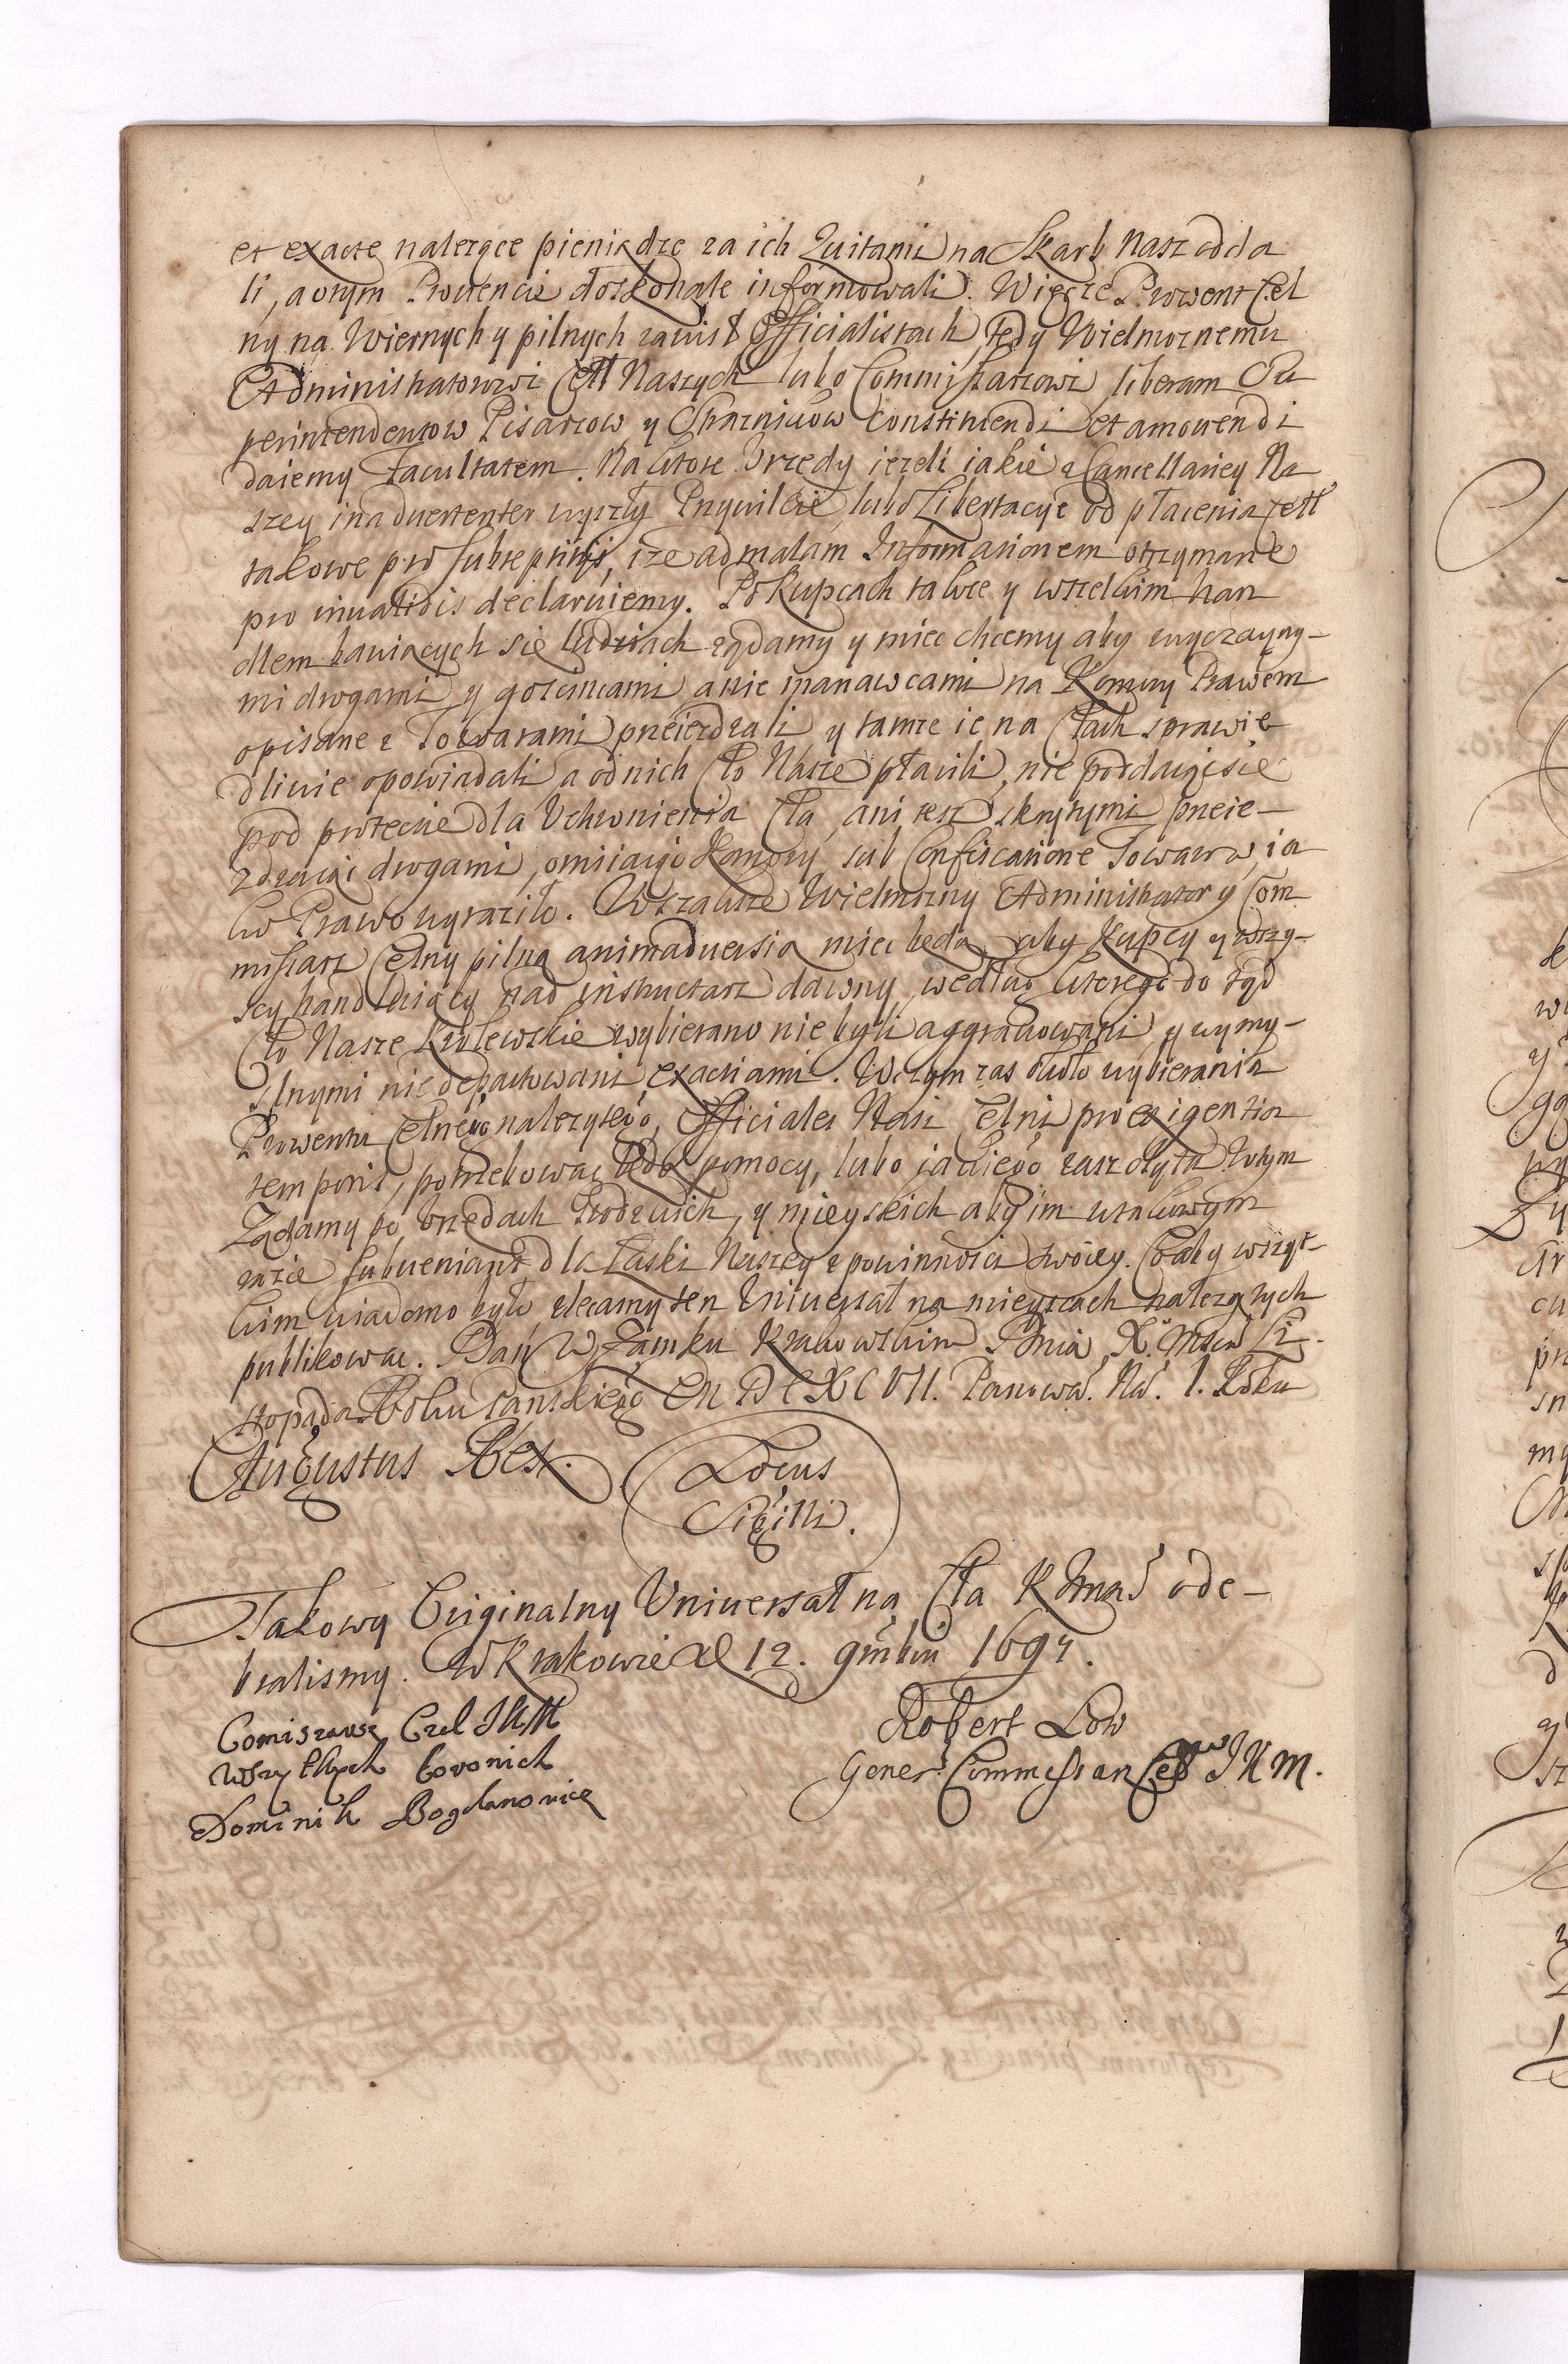 et exacte nalezące pieniądze za ich Quitami na Skarb Nasz odda
li, a o tym Prowencie doskonale informowali. Więc że Prowent Cel
ny na Wiernych y pilnych zawisł Officialistach, tedy Wielmoznemu
Administratorowi Cełł Naszych lubo Commissarzowi, liberam Su
perintendentow Pisarzow, y Straznikow Constituendi et amouendi
daiemy facultatem. Na ktore Vrzędy iezeli iakie z Cancellariey Na
szey inaduertenter wyszły Przywileie, lubo Libertacye od płacenia Cełł
takowe pro subreptitijs, i ze ad malam Informationem otrzymane
pro inualidis declaruiemy. Po Kupcach takze y wszelkim han
dlem bawiących się ludziach ządamy y miec chcemy aby zwyczayny-
mi drogami y goscincami a nie manowcami na Komory Prawem
opisane z Towarami przeiezdzali y tamze ie na Cłach sprawie
dliwie opowiadali a od nich Cło Nasze płacili, nie poddaiąc się
pod protectie dla Vchronienia Cła, ani tesz skrytymi przeie-
zdzaiąc drogami, omiiaiąc Komory, sub Confiscatione Towarow, ia
ko Prawo wyraziło. Wszakze Wielmozny Administrator y Com
missarz Celny pilną animaduersią miec będą, aby Kupcy y wszy-
scy handluiący nad instructarz dawny, wedlug ktorego do tąd
Cło Nasze Krolewskie wybierano nie byli aggrauowani, y wymy-
slnymi nie depactowani exactiami. W czym zas około wybierania
Prowentu Celnego nalezytego, Officiales Nasi Celni pro exigentia
temporis, potrzebowac będą pomocy, lubo iakiego zaszczytu, w tym
Ządamy po Vrzędach Grodzkich, y mieyskich aby im w takowym
razie subueniant dla Łaski Naszey z powinnosci swoiey. Co aby wszyt
kim wiadomo było, zlecamy ten Vniuersał na mieyscach nalezytych
publikowac. Dan w Zamku Krakowskim Dnia X. Msca Li-
stopada Roku Panskiego MDCXCVII. Panowa. Na. I. Roku
Augustus Rex.
Locus
Sigilli.
Takowy Originalny Vniuersał na Cła K Jmsci ode-
bralismy. W Krakowie d 12. 9mbris 1697.
Comiszarsz Czel JKM
Wszytkych Coronich
Dominik Bogdanovicz
Robert Low
Gener. Commissarz Ceł JKM.